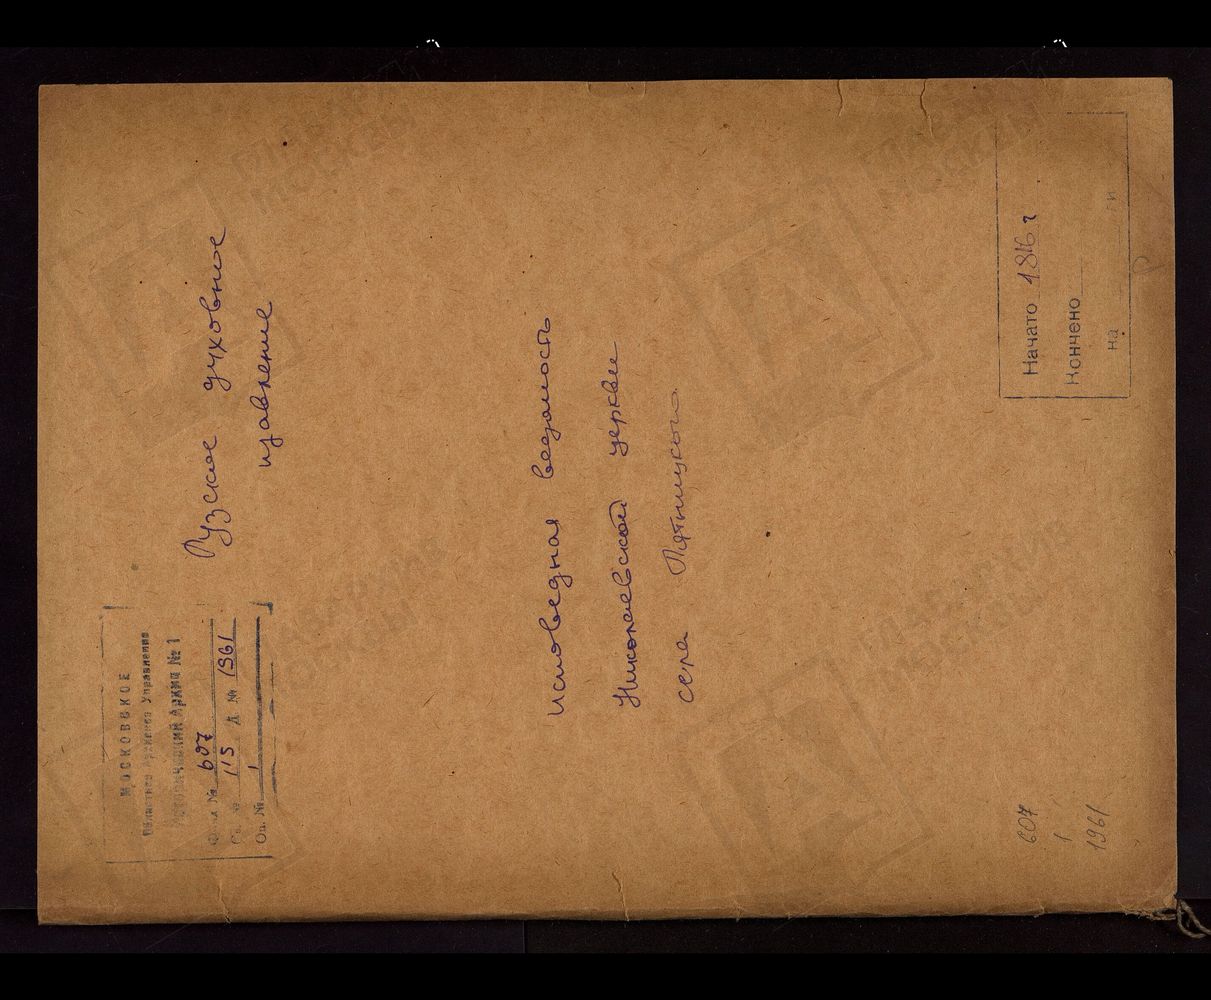 МОСКОВСКОЕ
Областное Архивное Управление
Исторический Архив № 1
Фонд № 607
Св. № 115 Д. № 1961
Оп. № 1
Рузское духовное
правление
Исповедная ведомость
Николаевской церкви
села Пятницкого
Начато 1816 г
Кончено
на
607
1
1961
ГЛАВАРХИВ
МОСКВЫ